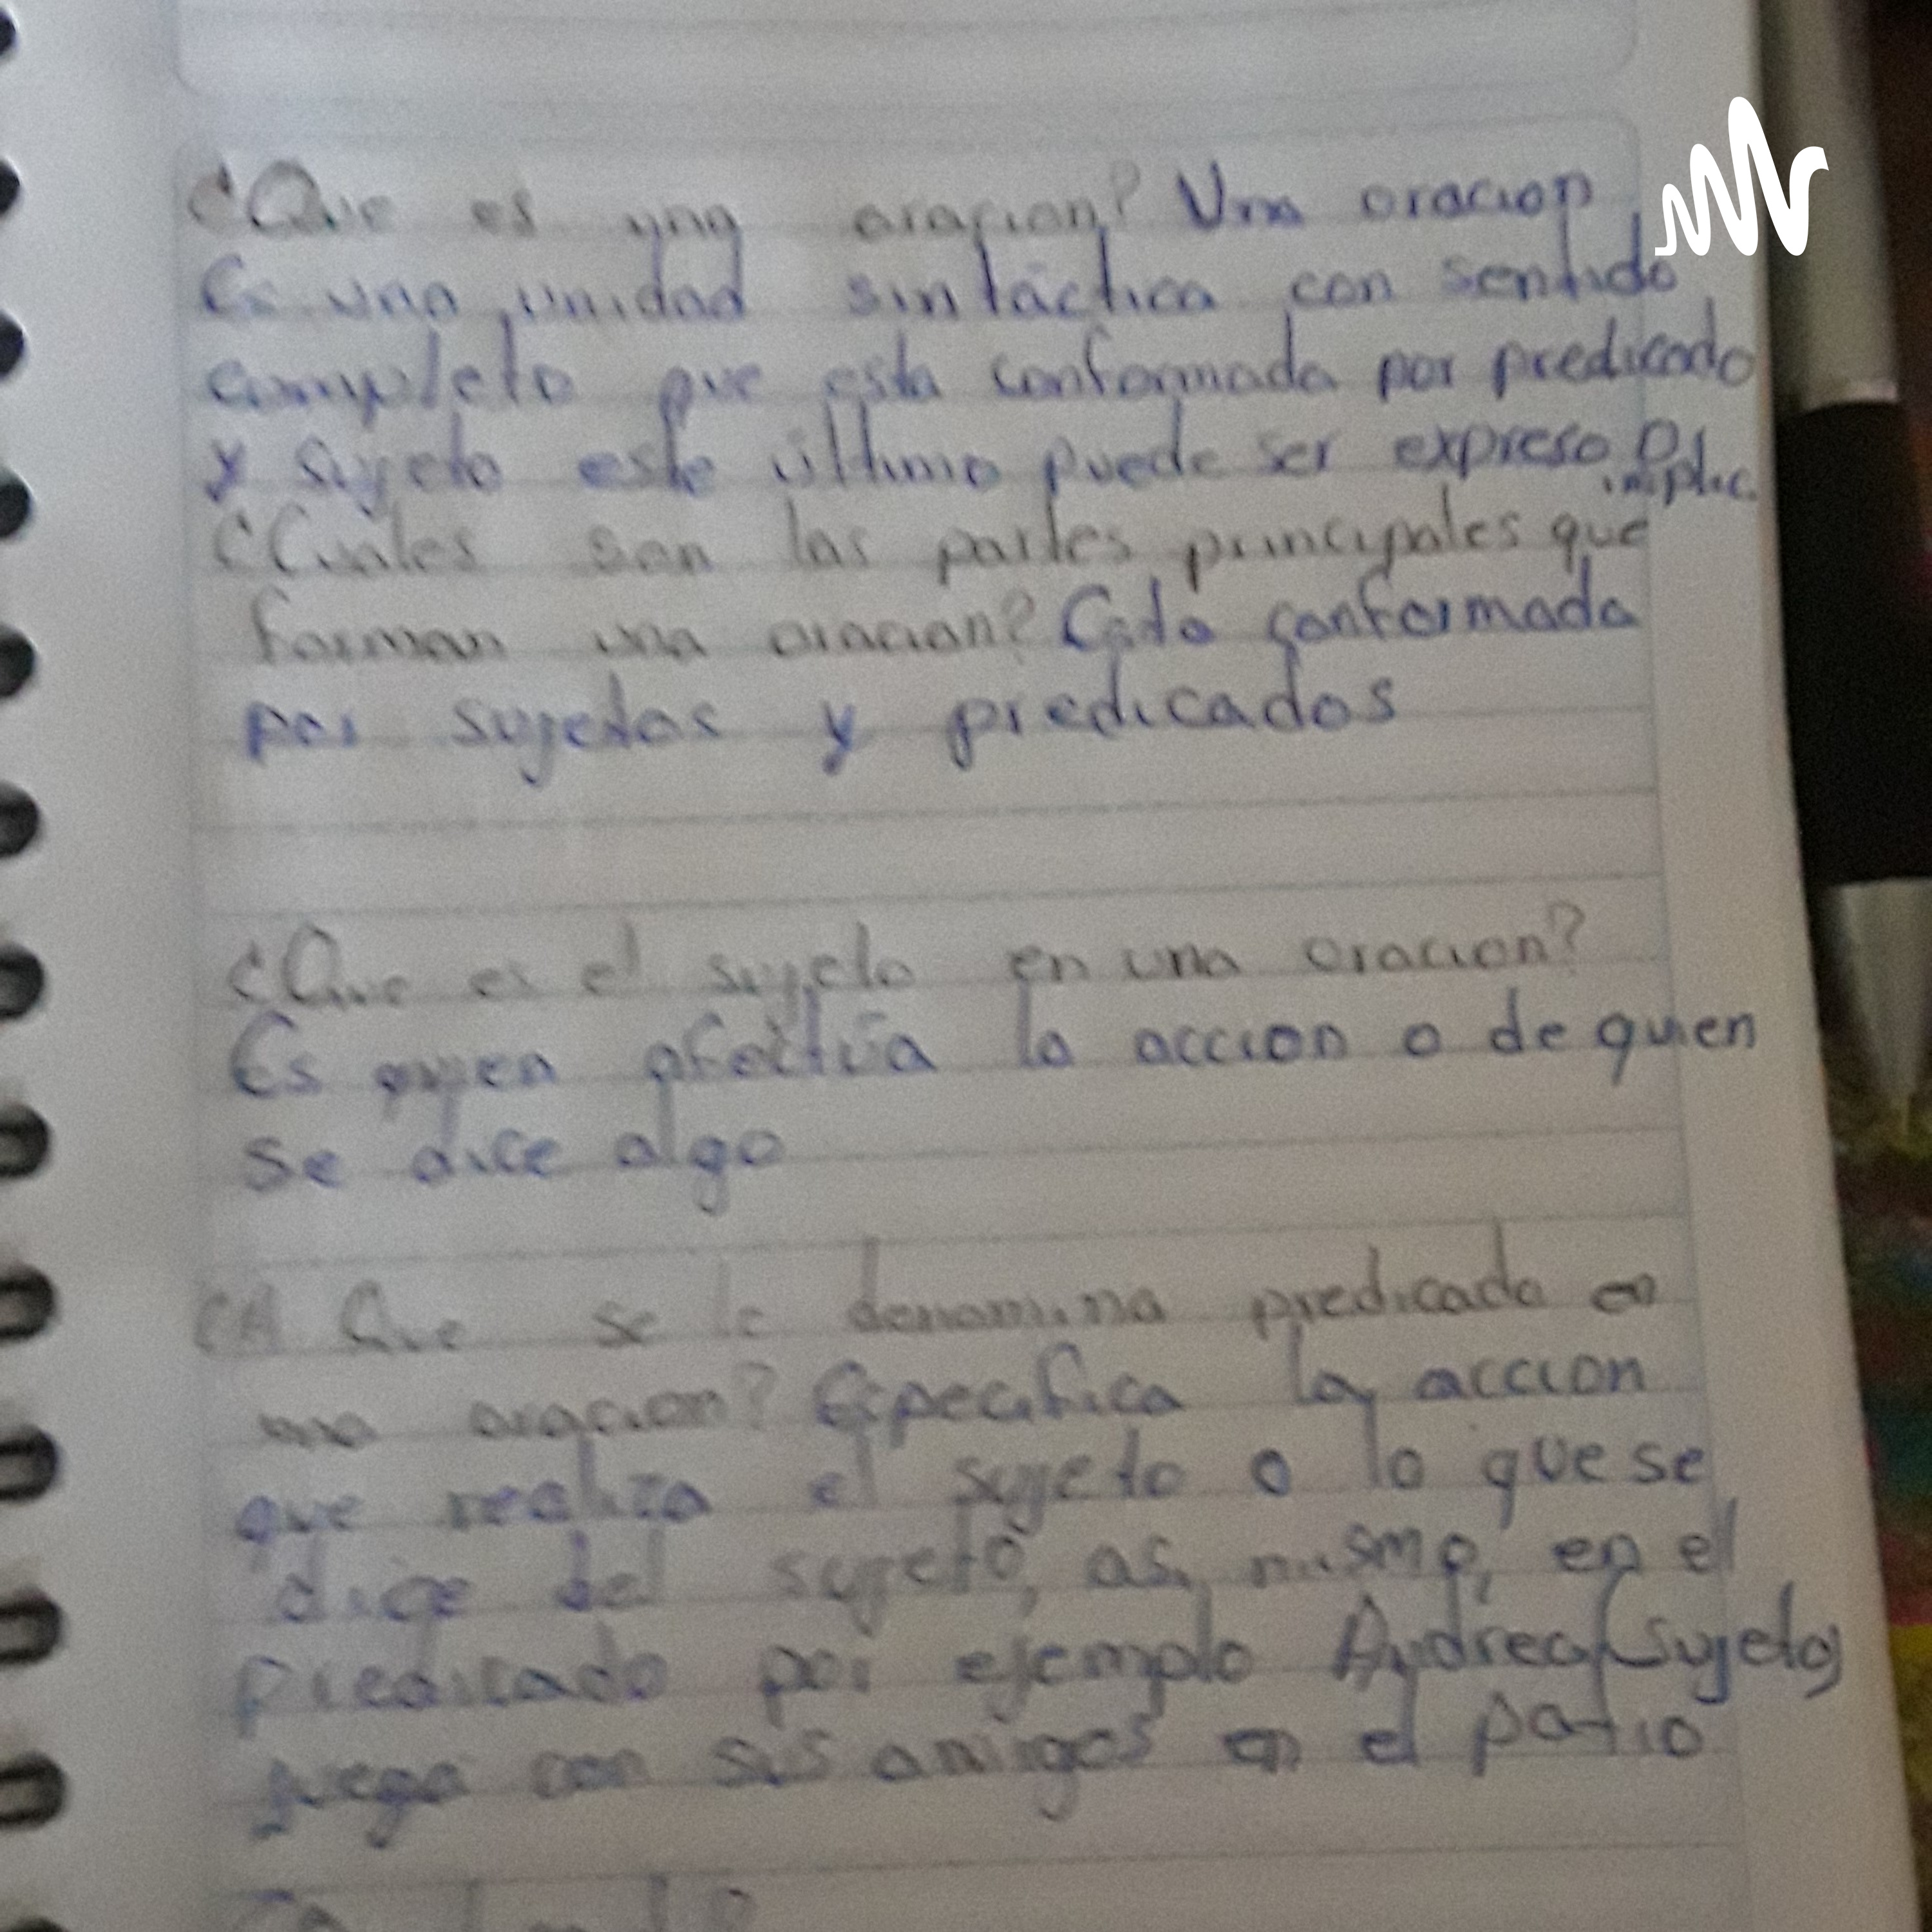 ¿Que es una oracion? Una oracion
Es una unidad sintáctica con sentido
completo que esta conformada por predicado
y sujeto este último puede ser expreso o
implic.
¿Cuales son las partes principales que
forman una oracion? Cada conformada
por sujetos y predicados
¿Que es el sujeto en una oracion?
Es quien efectúa la accion o de quien
se dice algo
¿A Que se le denomina predicado en
una oracion? Especifica la accion
que realiza el sujeto o lo que se
dice del sujeto, asi mismo, en el
predicado por ejemplo Andrea (sujeto)
juega con sus amigos en el patio